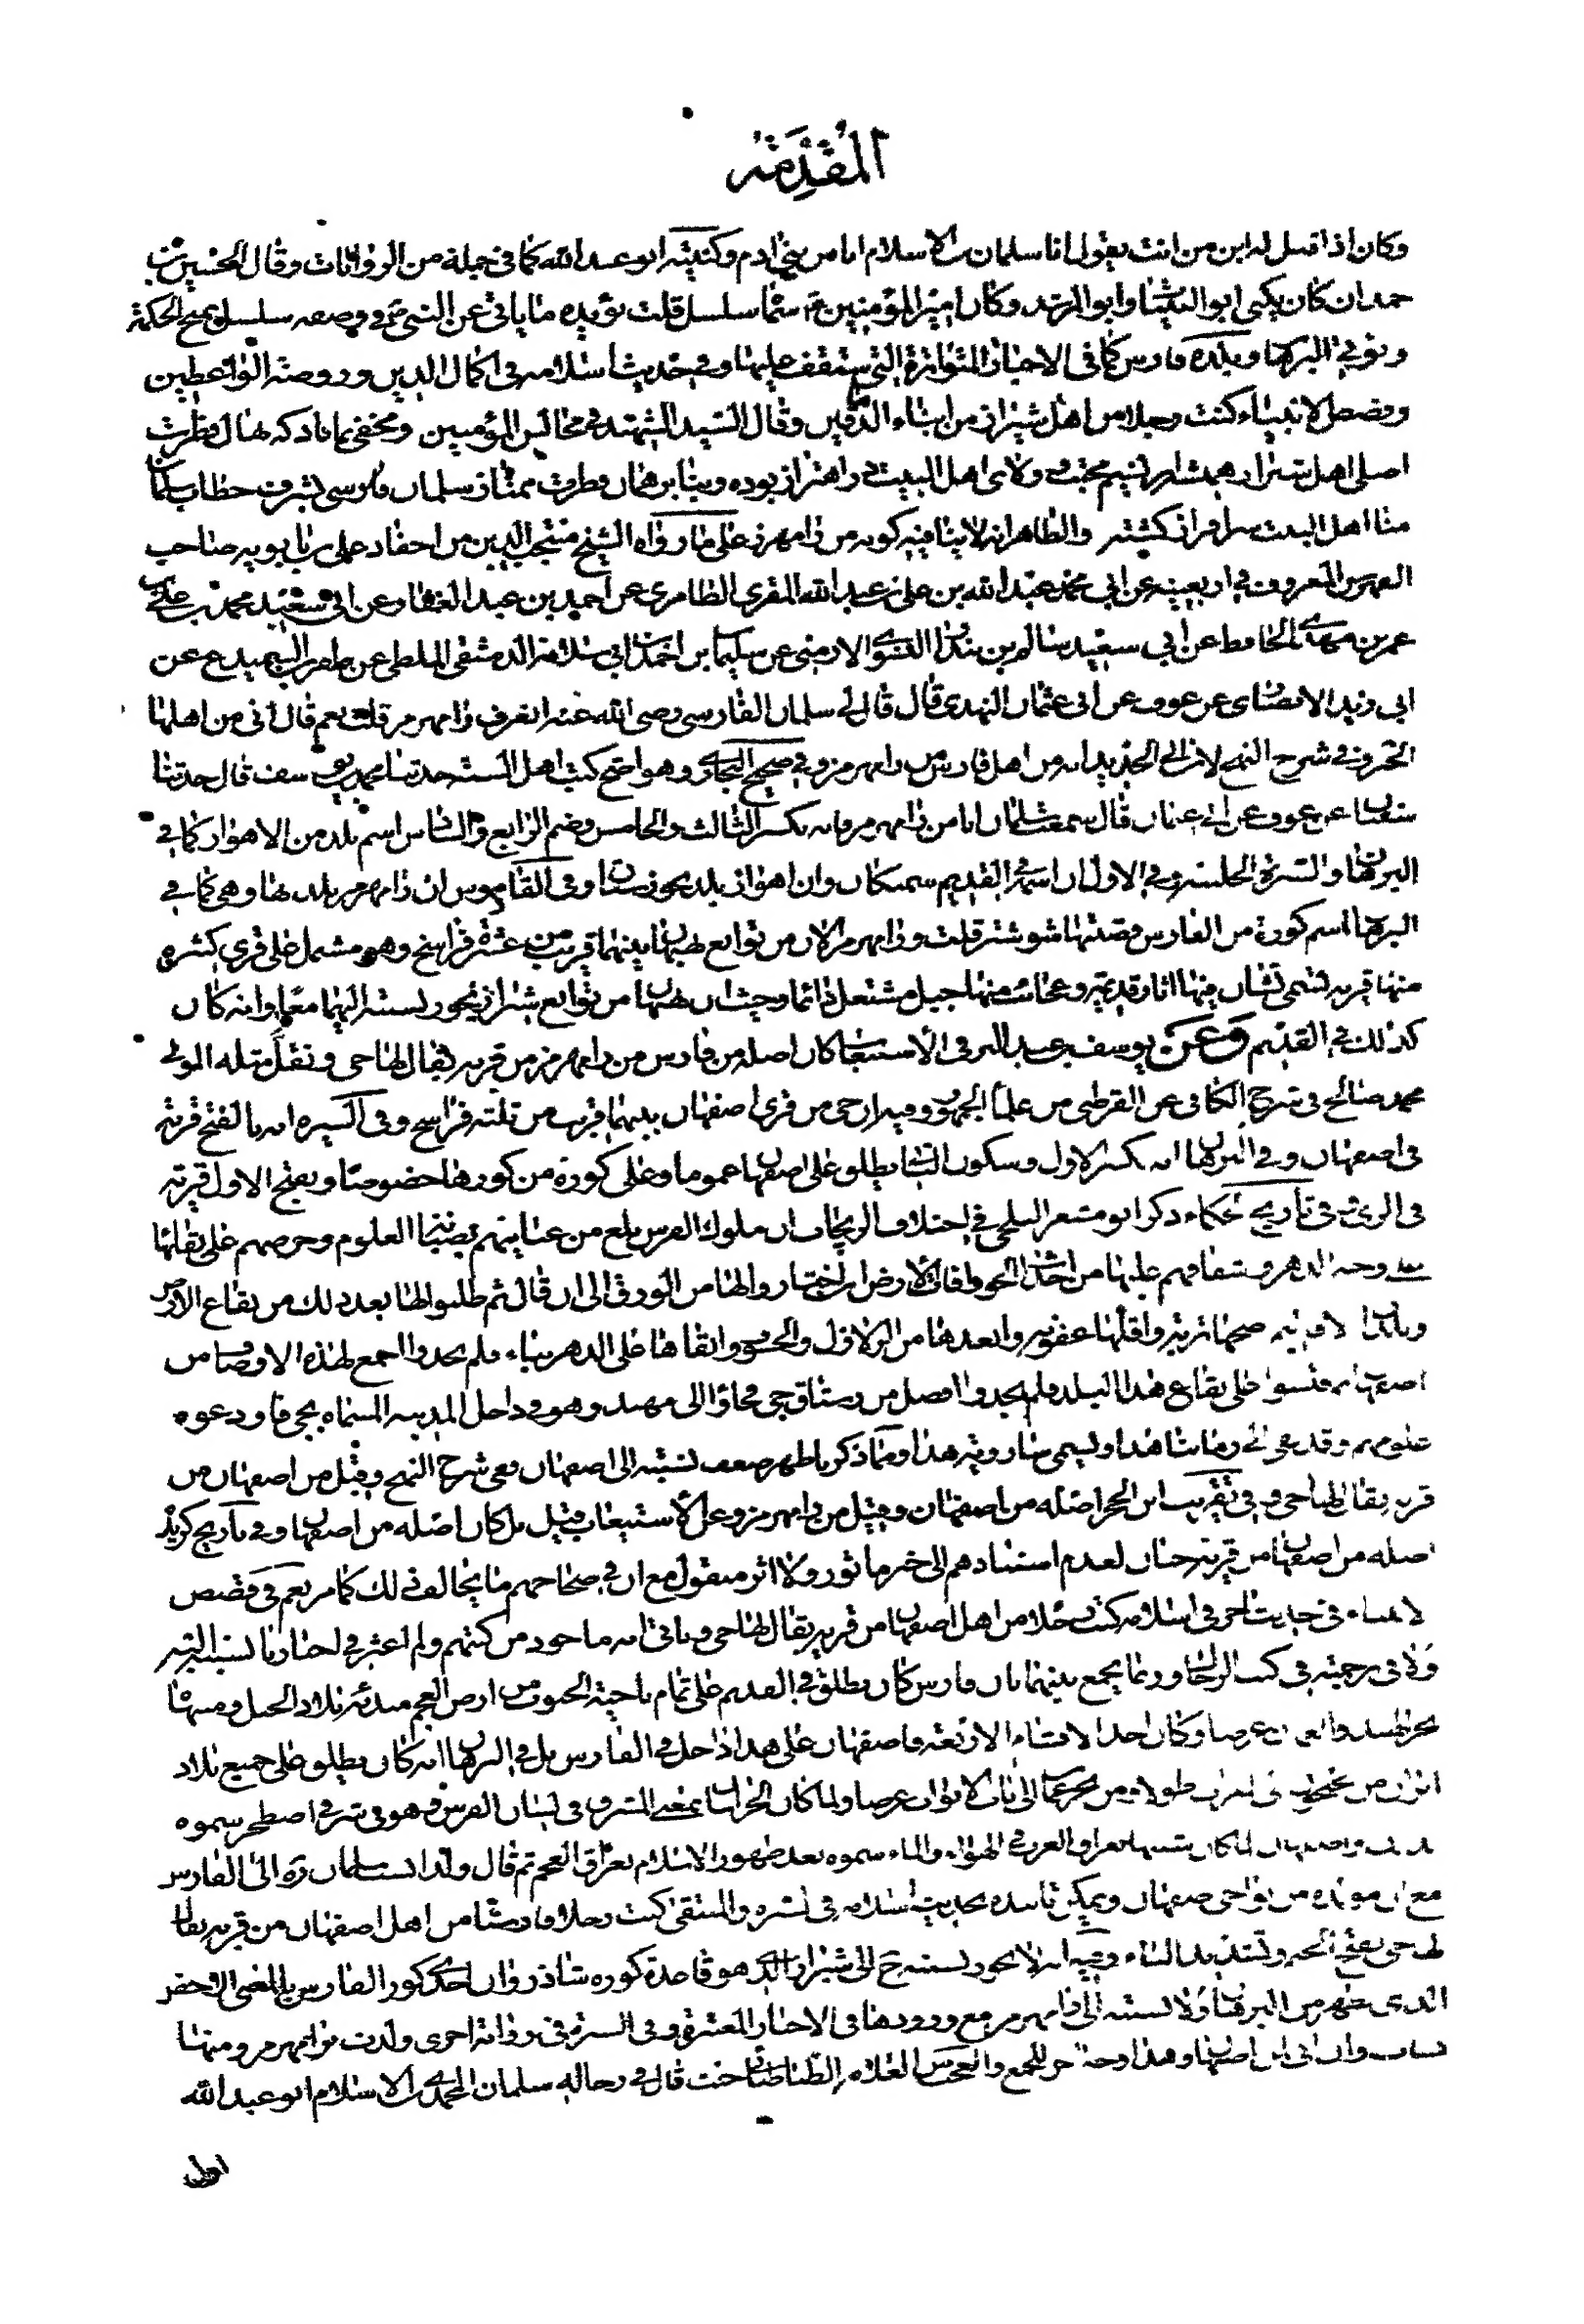 المُقَدِّمَة
وكان اذا قيل له ابن من انت يقول انا سلمان بن الاسلام انا من بني ادم وكنيته ابو عبد الله كما في جملة من الروايات وقال الحسين بن
حمدان كان يكنى ابو البينات وابو المرشد وكان امير المؤمنين ع سماه سلسل قلت يؤيده ما ياتي عن النبي ص في وصفه سلسل يمنح الحكمة
ويؤتي البرهان وبلده فارس كما في الاخبار المتواترة التي ستقف عليها وفي حديث اسلامه في اكمال الدين وروضة الواعظين
وقصص الانبياء كنت رجلا من اهل شيراز من ابناء الدهاقين وقال السيد الشهيد في مجالس المؤمنين ومخفى نماناد كه نهال فطرت
اصلي اهل شيراز هميشه از نسيم محبت و ولاى اهل البيت در اهتزاز بوده وبنابر همان فطرت ممتاز سلمان فارسى بشرف خطاب سلمان
منا اهل البيت سرافراز كشته والظاهر انه لا ينافيه كونه من رامهرمز على ما رواه الشيخ منتجب الدين من احفاد علي بن بابويه صاحب
الفهرس المعروف في اربعينه عن ابي محمد عبد الله بن علي بن عبد الله المقري الطامري عن احمد بن عبد الغفار عن ابي سعيد محمد بن علي بن
عمر بن مهدي الحافظ عن ابي سعيد سالم بن بندار الارمني عن سليمان بن احمد بن ابي سلامة الدمشقي الملطي عن عن
ابي زيد الانصاري عن عوف عن ابي عثمان النهدي قال قال لي سلمان الفارسي رضي الله عنه اتعرف رامهرمز قلت نعم قال اني من اهلها
وفي شرح النهج لابن ابي الحديد انه من اهل فارس من رامهرمز وفي صحيح البخاري وهو اصح كتب اهل السنة حدثنا محمد بن يوسف قال حدثنا
سفيان عن عوف عن ابي عثمان قال سمعت سلمان انا من رامهرمز فانه بكسر الثالث والخامس وضم الرابع والسادس اسم بلد من الاهواز كما في
البرهان والسيرة الحلبية وفي الاول ان اسمه في القديم سمنكان وان اهواز بلد بخوزستان وفي القاموس ان رامهرمز بلد بها وهي كما في
البرهان اسم كورة من الفارس قصبتها شوشتر قلت ورامهرمز الان من توابع بهبهان بينهما قريب من عشرة فراسخ وهو مشتمل على قرى كثيرة
منها قرية تسمى تشان فيها اثار قديمة وعجائب منها جبل مشتعل دائما وحيث ان بهبهان من توابع شيراز يجوز نسبته اليهما معا وانه كان
كذلك في القديم وَعَن يوسف بن عبد البر في الاستيعاب كان اصله من فارس من رامهرمز من قرية يقال لها جى ونقل مثله المولى
محمد صالح في شرح الكافي عن القرطبي من علماء الجمهور وفيه ان جى من قرى اصفهان بينهما قريب من ثلثة فراسخ وفي السيرة انه بالفتح قرية
في اصفهان وفي البرهان انه بكسر الاول وسكون الثاني يطلق على اصفهان عموما وعلى كورة من كورها خصوصا وبفتح الاول قرية
في الرى وفي تأريخ الحكماء ذكر ابو معشر البلخي في اختلاف الزيجات ان ملوك الفرس بلغ من عنايتهم بصيانة العلوم وحرصهم على بقائها
على وجه الدهر واشفاقهم عليها من احداث الجو وافات الارض ان اختاروا لها من الورق الى ان قال ثم طلبوا لها بعد ذلك من بقاع الارض
وبلدان الاقاليم اصحها تربة واقلها عفونة وابعدها من الزلازل والخسوف وابقاها على الدهر بناء فلم يجدوا اجمع لهذه الاوصاف من
اصفهان ففتشوا على بقاع هذا البلد فلم يجدوا افضل من رستاق جى فجاؤا الى وهو في داخل المدينة المسماة بجى فاودعوه
علومهم وقد بقى الى زماننا هذا ويسمى سارويه هذا ومما ذكرنا ظهر ضعف نسبته الى اصفهان ففي شرح النهج وقيل من اصفهان من
قرية يقال لها جى وفي تقريب ابن الحجر اصله من اصفهان وقيل من رامهرمز وعن الاستيعاب قيل بل كان اصله من اصفهان وفي تأريخ كزيده
اصله من اصفهان من قرية جنان لعدم استنادهم الى خبر ماثور ولا اثر منقول مع ان في صحاحهم ما يخالف ذلك كما مر نعم في قصص
الانبياء في حديث اخر في اسلامه كنت رجلا من اهل اصفهان من قرية يقال لها جى وياتي انه ماخوذ من كتبهم ولم اعثر في اخبارنا بنسبته اليه
ولا في ترجمته في كتب الرجال وربما يجمع بينهما بان فارس كان يطلق في القديم على تمام ناحية الجنوب من ارض العجم مبدئه بلاد الجبل ومنتهاه
بحر الهند عرضا وكان احد الاقسام الاربعة واصفهان على هذا داخل في الفارس بل في البرهان انه كان يطلق على جميع بلاد
ايران من طولا ومن بحر عمان الى باب الابواب عرضا ولما كان الخراسان بمعنى المشرق في لسان الفرس وهو في شرقي اصطخر سموه
واصفهان لما كان شبيها بعراق العرب في الهواء والماء سموه بعد ظهور الاسلام بعراق العجم ثم قال ولذا نسب سلمان ره الى الفارس
مع ان مولده من نواحي اصفهان ويمكن تاييده بحديث اسلامه في السيرة والمنتقى كنت رجلا فارسيا من اهل اصفهان من قرية يقال
لها جى بفتح الجيم وتشديد الياء وفيه انه لا يجوز نسبته ح الى شيراز الذي هو قاعدة كوره شاذروان احدى كور الفارس بالمعنى الاخص
الذي ظهر من البرهان ولا نسبته الى رامهرمز مع ورودها في الاخبار المعتبرة وفي السيرة في رواية اخرى ولدت برامهرمز ومنها
نسات وان ابي من اصفهان وهذا وجه اخر للجمع والعجب من العلامة الطباطبائي حيث قال في رجاله سلمان المحمدي بن الاسلام ابو عبد الله
اول